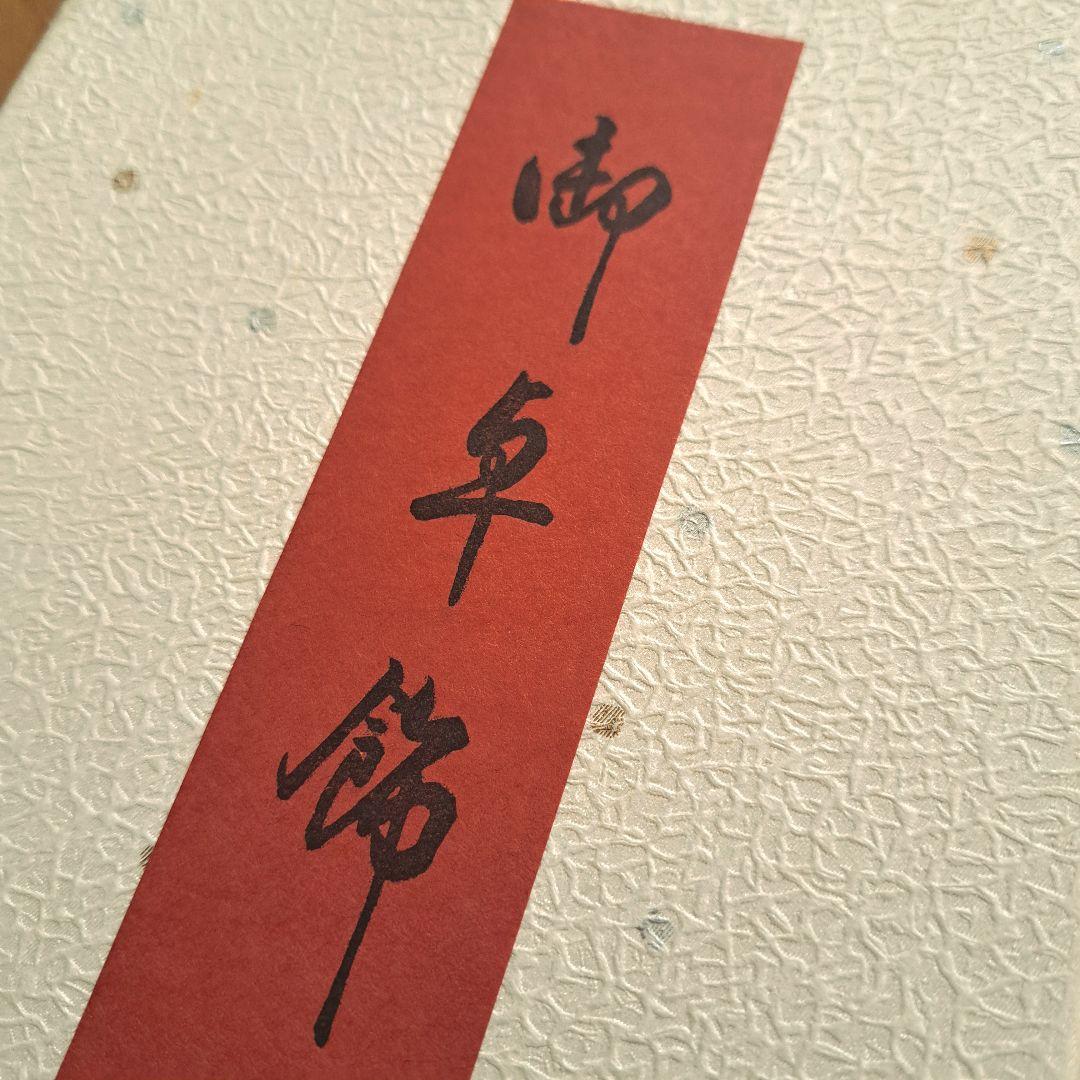 御卓飾